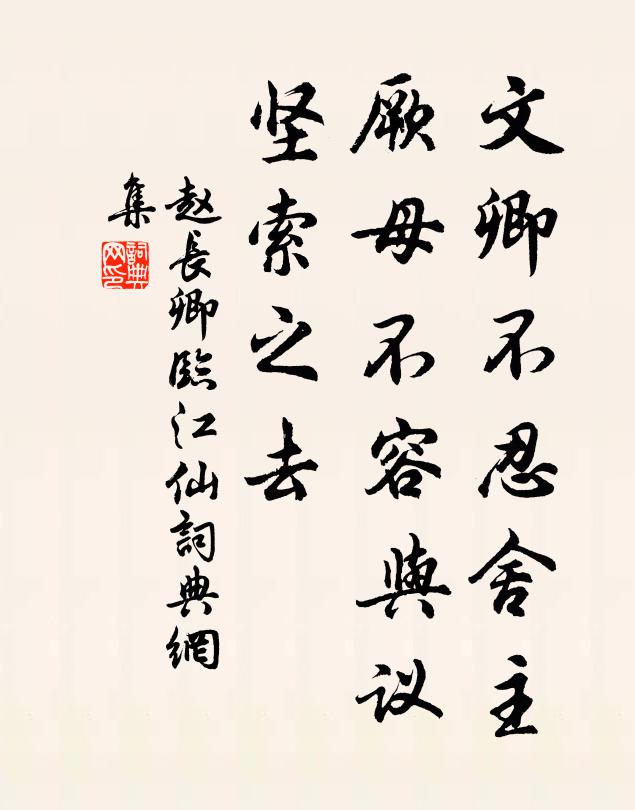 文卿不忍舍主
厥母不容與议
坚索之去
赵長卿臨江仙詞典網
集
詞典
网印